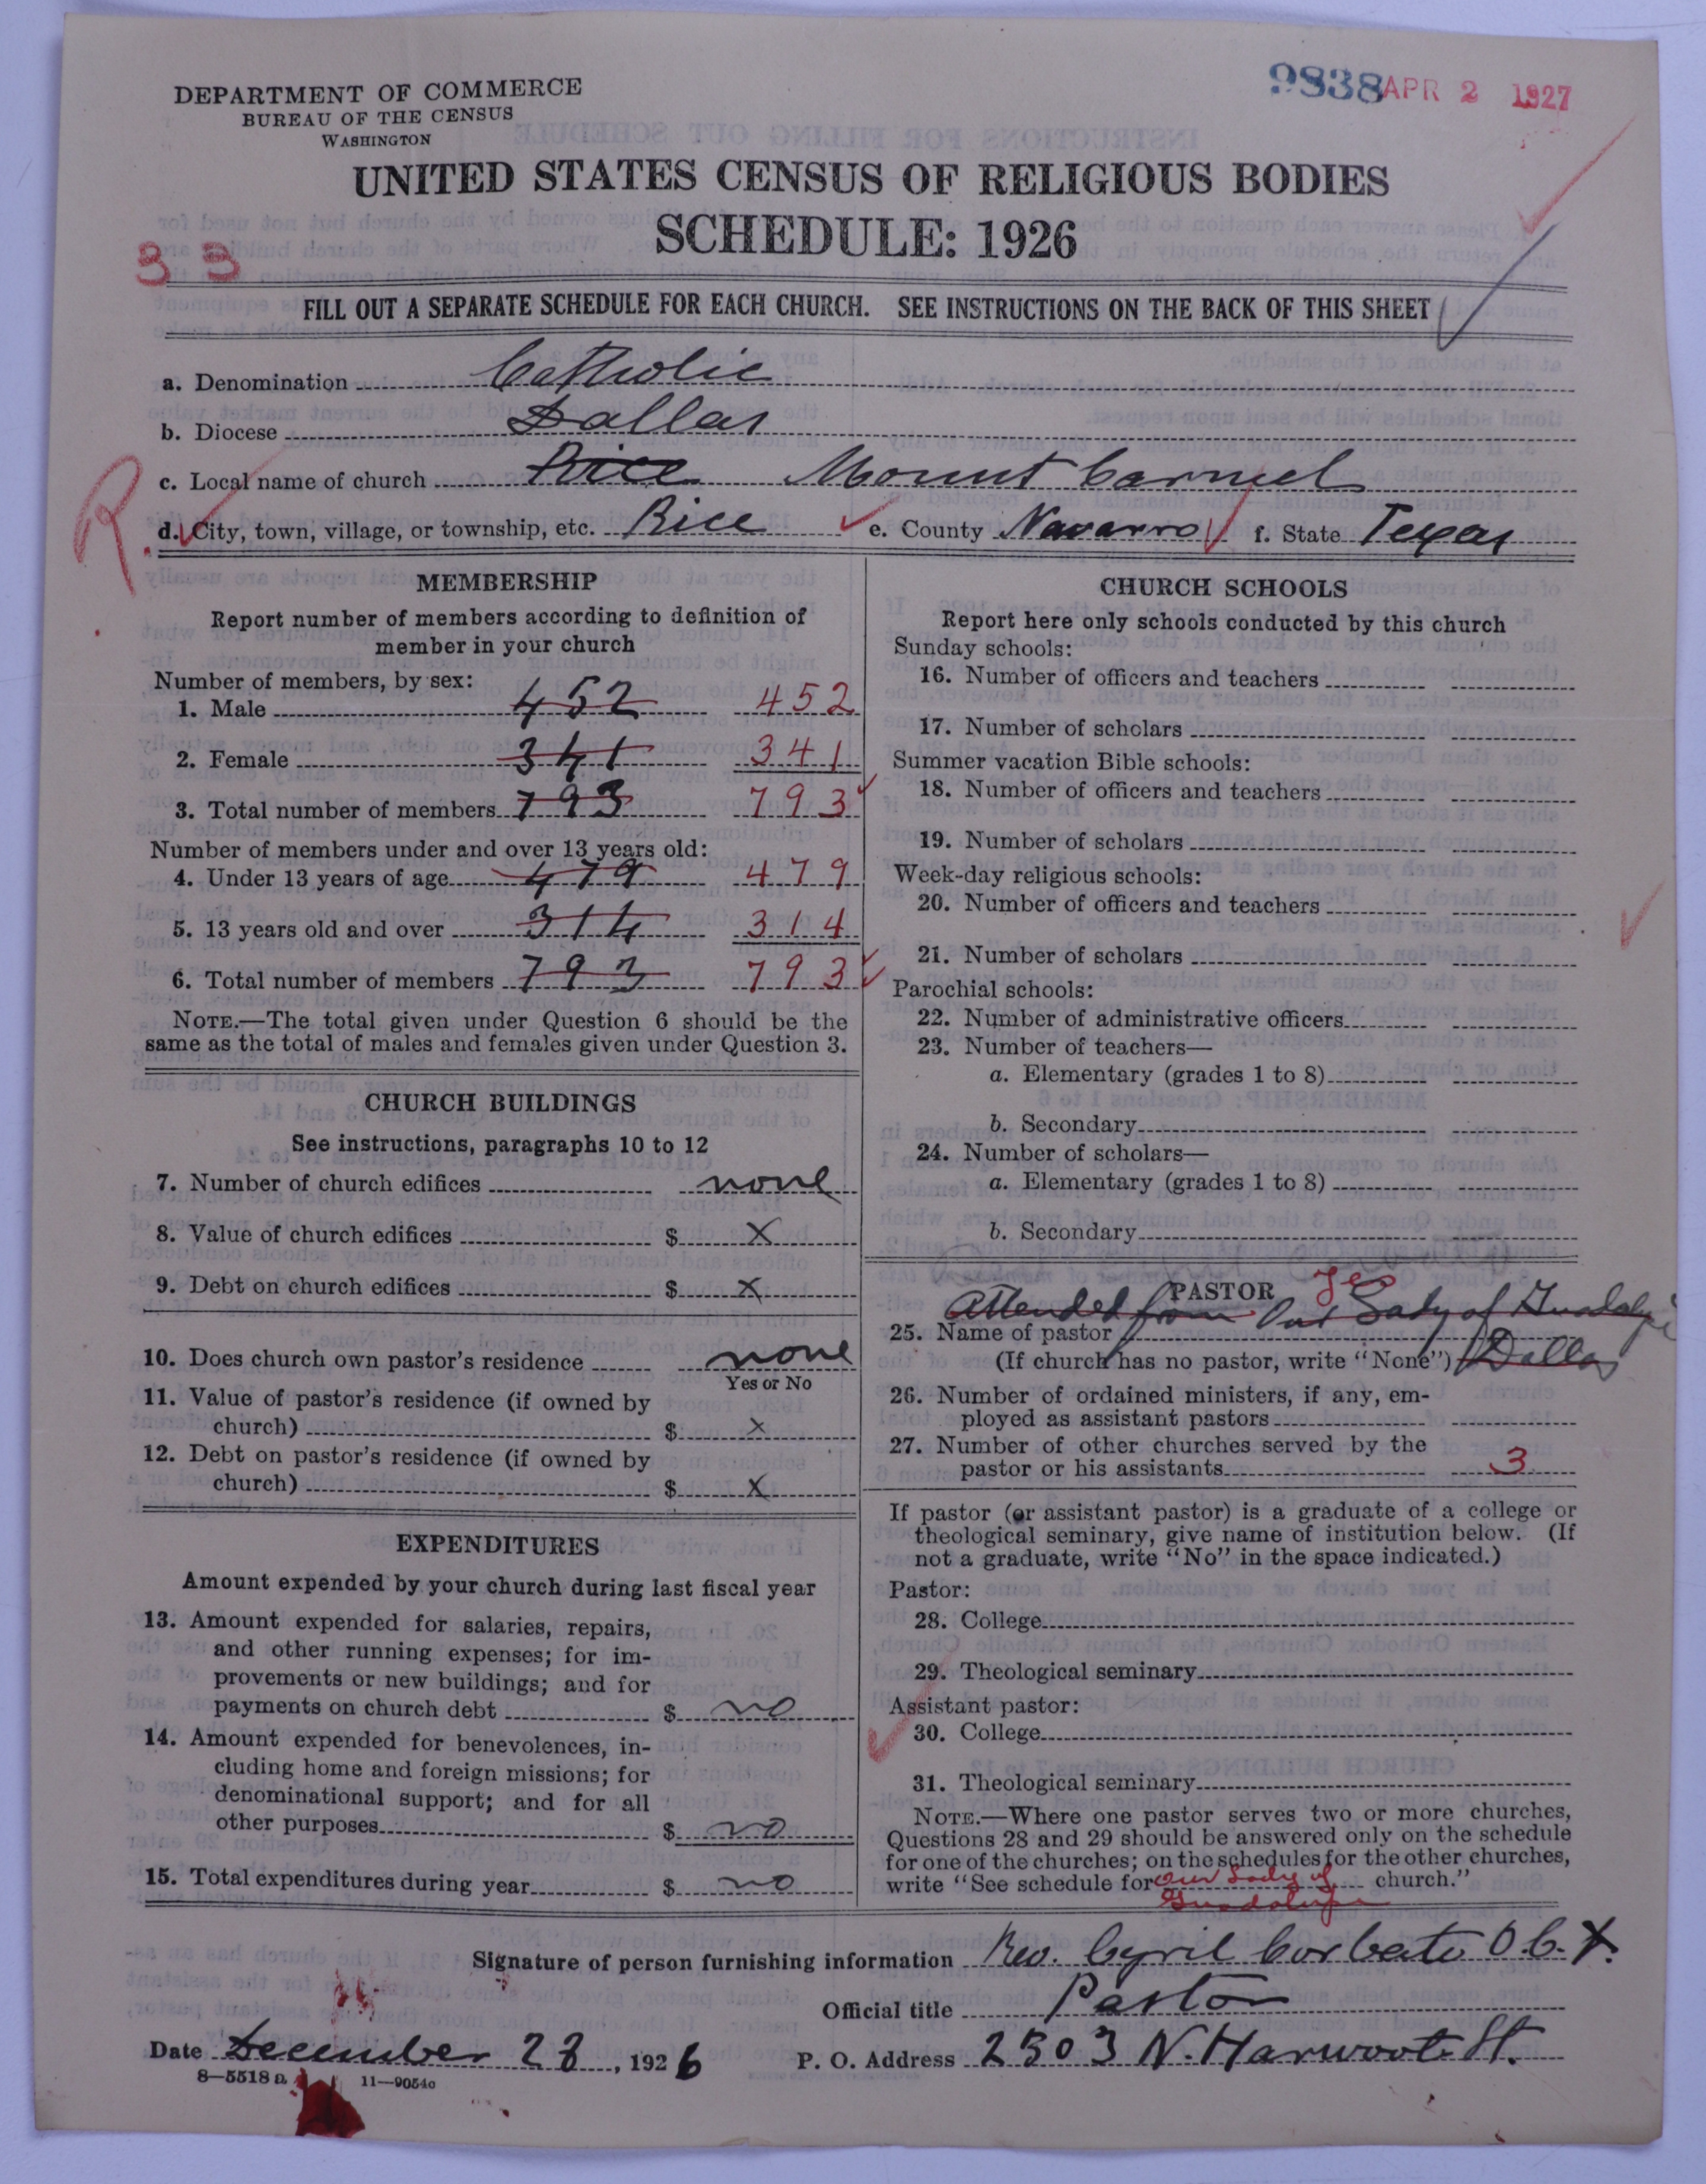 DEPARTMENT OF COMMERCE
BUREAU OF THE CENSUS
WASHINGTON
9838 APR 2 1927
UNITED STATES CENSUS OF RELIGIOUS BODIES
SCHEDULE: 1926
3 3
FILL OUT A SEPARATE SCHEDULE FOR EACH CHURCH. SEE INSTRUCTIONS ON THE BACK OF THIS SHEET
a. Denomination Catholic
b. Diocese Dallas
c. Local name of church Rice Mount Carmel
R
d. City, town, village, or township, etc. Rice e. County Navarro f. State Texas
MEMBERSHIP
Report number of members according to definition of
member in your church
Number of members, by sex:
1. Male 452 452
2. Female 341 341
3. Total number of members 793 793
Number of members under and over 13 years old:
4. Under 13 years of age 479 479
5. 13 years old and over 314 314
6. Total number of members 793 793
NOTE.—The total given under Question 6 should be the
same as the total of males and females given under Question 3.
CHURCH BUILDINGS
See instructions, paragraphs 10 to 12
7. Number of church edifices none
8. Value of church edifices $ X
9. Debt on church edifices $ X
10. Does church own pastor's residence none
Yes or No
11. Value of pastor's residence (if owned by
church) $ X
12. Debt on pastor's residence (if owned by
church) $ X
EXPENDITURES
Amount expended by your church during last fiscal year
13. Amount expended for salaries, repairs,
and other running expenses; for im-
provements or new buildings; and for
payments on church debt $ no
14. Amount expended for benevolences, in-
cluding home and foreign missions; for
denominational support; and for all
other purposes $ no
15. Total expenditures during year $ no
CHURCH SCHOOLS
Report here only schools conducted by this church
Sunday schools:
16. Number of officers and teachers
17. Number of scholars
Summer vacation Bible schools:
18. Number of officers and teachers
19. Number of scholars
Week-day religious schools:
20. Number of officers and teachers
21. Number of scholars
Parochial schools:
22. Number of administrative officers
23. Number of teachers—
a. Elementary (grades 1 to 8)
b. Secondary
24. Number of scholars—
a. Elementary (grades 1 to 8)
b. Secondary
PASTOR
Attended from Our Lady of Guadalupe
25. Name of pastor
(If church has no pastor, write "None") Dallas
26. Number of ordained ministers, if any, em-
ployed as assistant pastors
27. Number of other churches served by the
pastor or his assistants 3
If pastor (or assistant pastor) is a graduate of a college or
theological seminary, give name of institution below. (If
not a graduate, write "No" in the space indicated.)
Pastor:
28. College
29. Theological seminary
Assistant pastor:
30. College
31. Theological seminary
NOTE.—Where one pastor serves two or more churches,
Questions 28 and 29 should be answered only on the schedule
for one of the churches; on the schedules for the other churches,
write "See schedule for Our Lady of church."
Guadalupe
Signature of person furnishing information Rev. Cyril Corbato O.C.
Official title Pastor
Date December 28, 1926 P. O. Address 2303 N. Harwood St.
8—5518 a 11—9054c